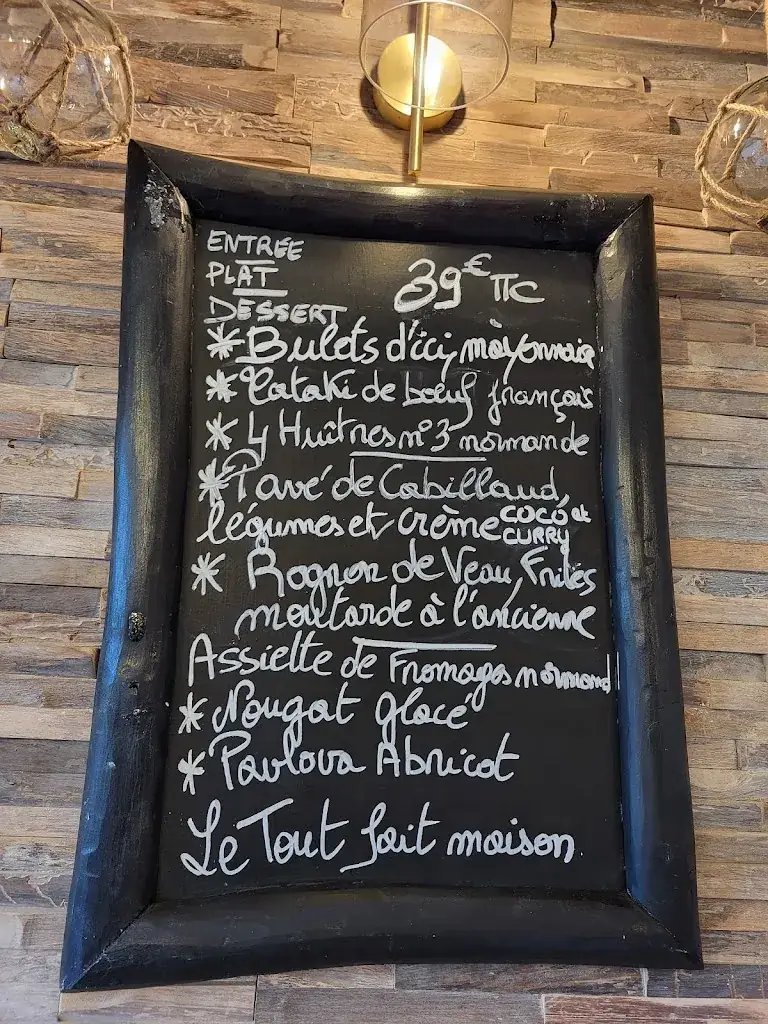 ENTREE
PLAT
DESSERT
39€ TTC
* Bulots d'ici, mayonnaise
* Tataki de bœuf français
* 4 Huîtres n°3 normande
* Pavé de Cabillaud,
légumes et crème coco et
CURRY
* Rognon de Veau, Frites
moutarde à l'ancienne
Assiette de Fromages normand
* Nougat glacé
* Pavlova Abricot
Le Tout fait maison